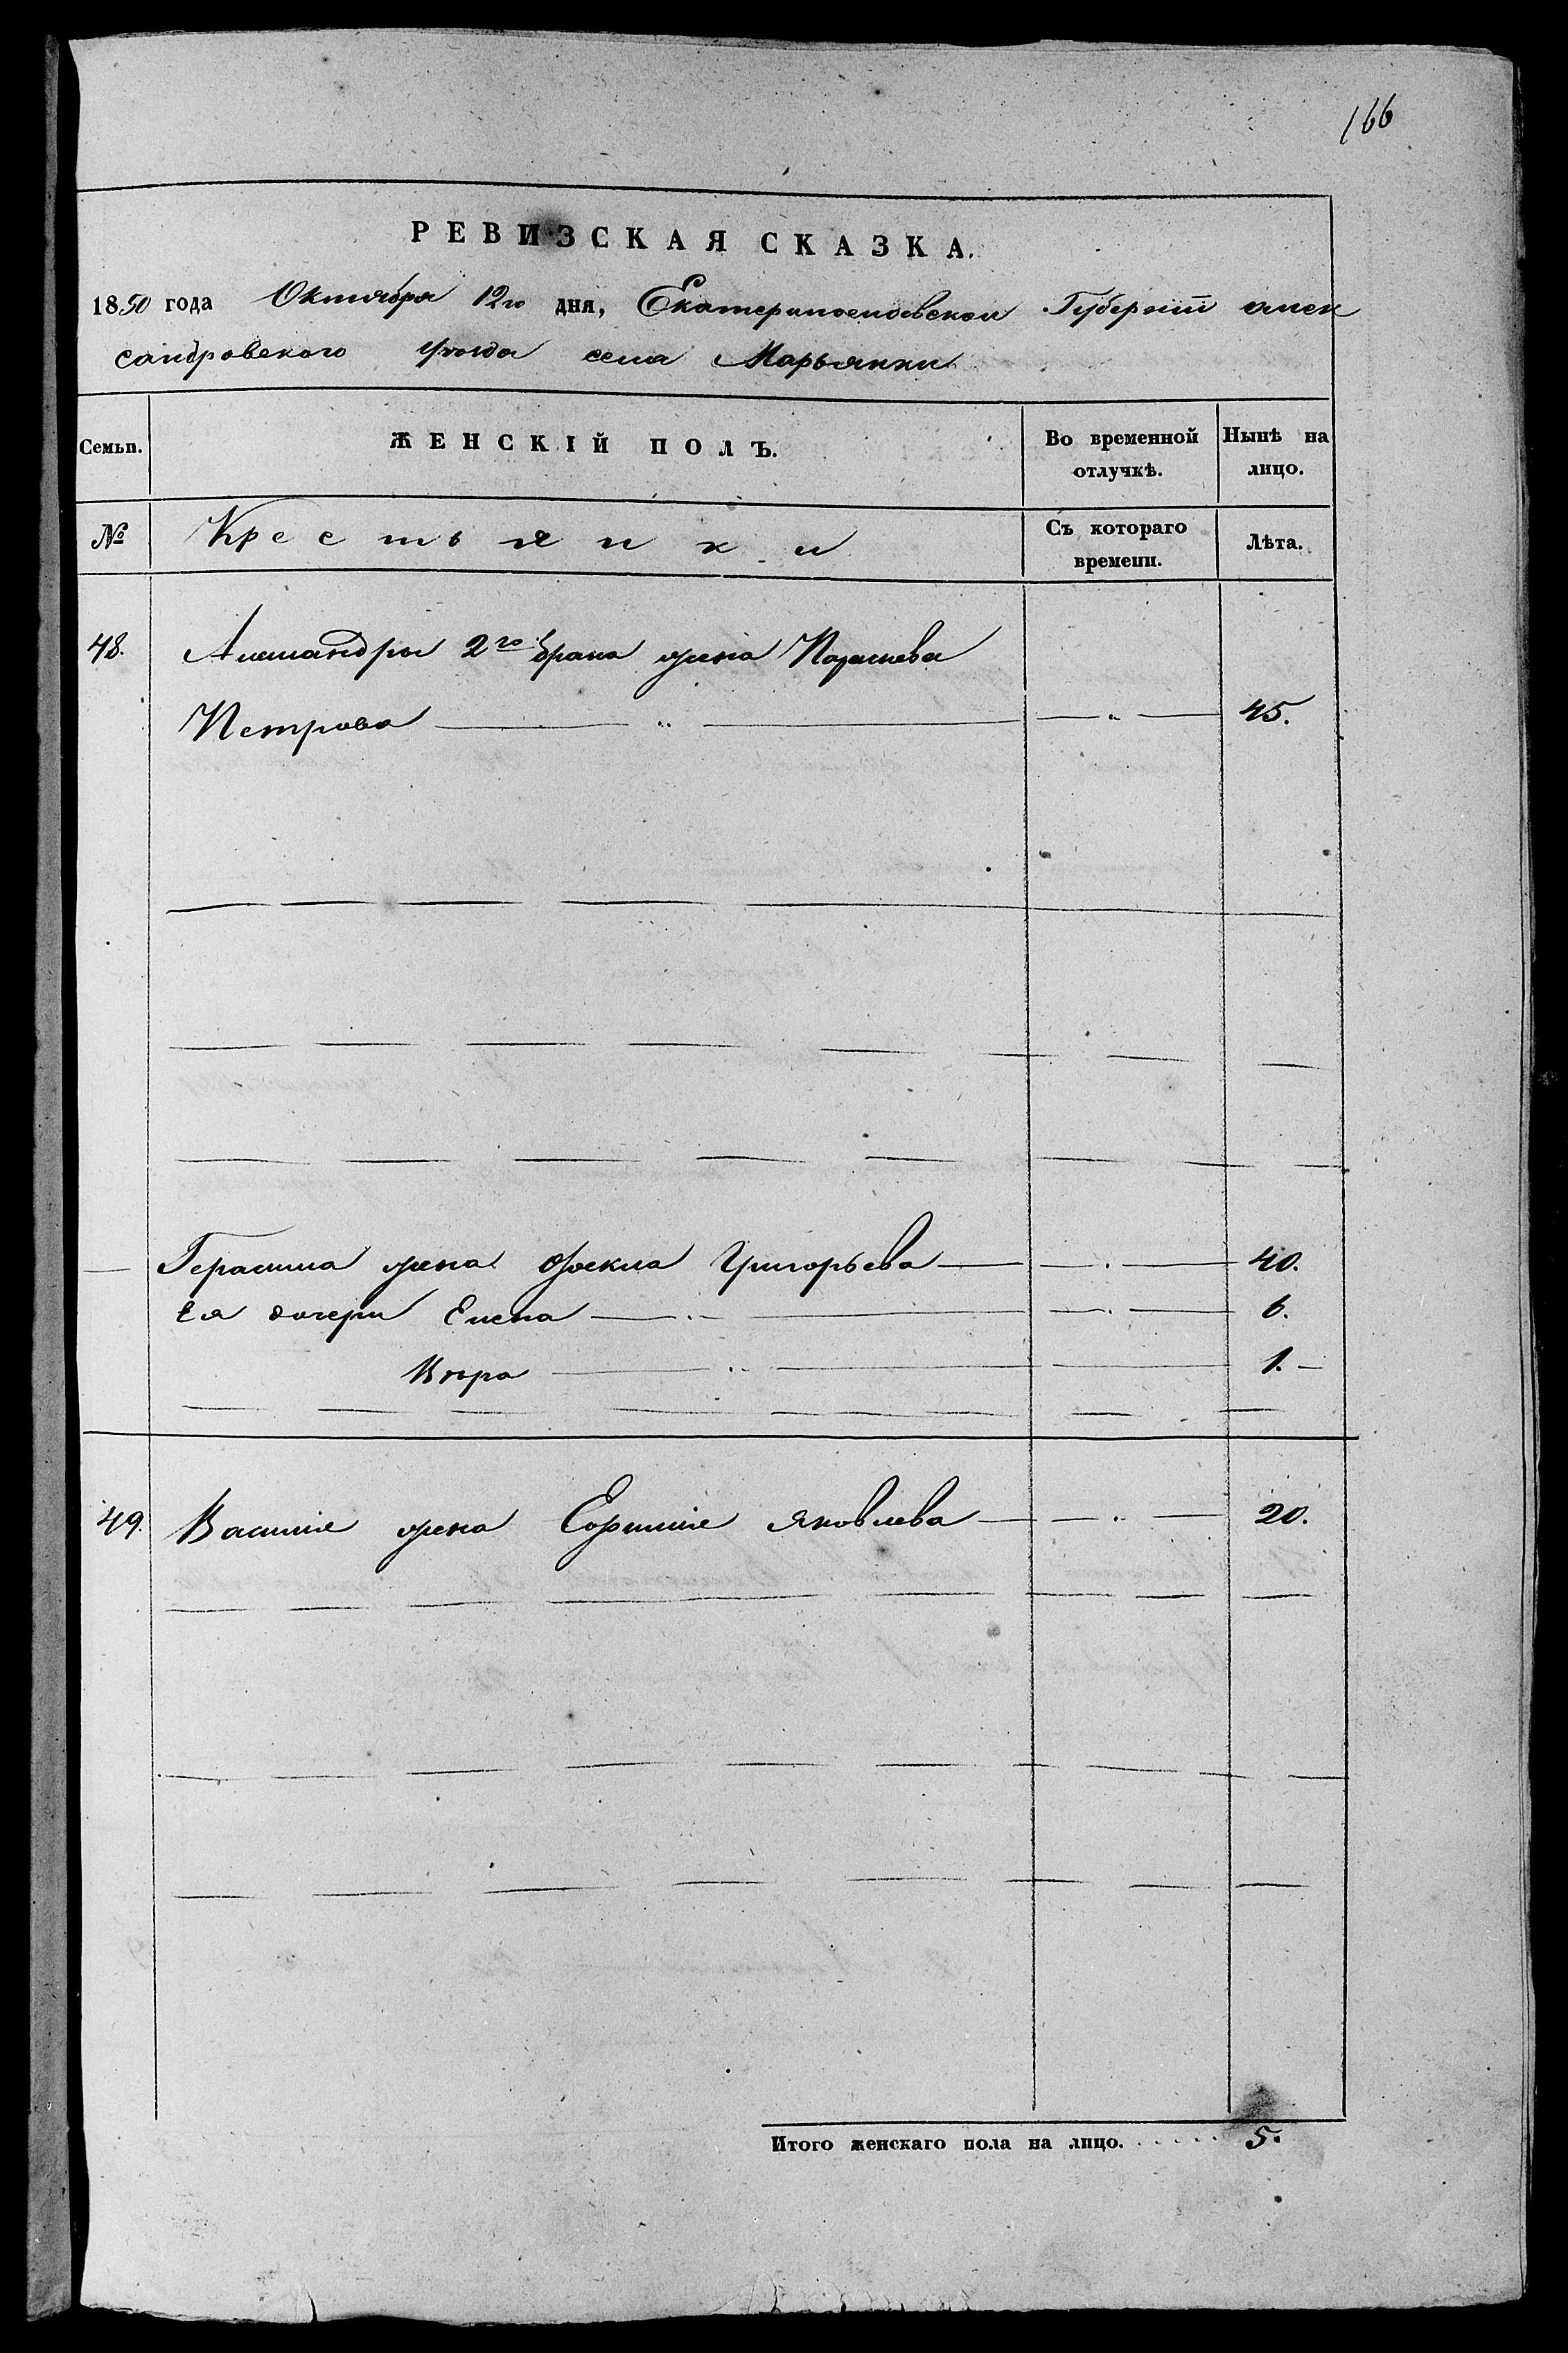 166
РЕВИЗСКАЯ СКАЗКА.
1850 года Октября 12го дня, Екатеринославской Губернiи алек
сандровского уѣзда села Марьянки
Семьи. ЖЕНСКІЙ ПОЛЪ. Во временной отлучкѣ. Нынѣ на лицо.
№ Крестьянки Съ котораго времени. Лѣта.
48. 2го брака жена Параскева
Петрова — " — — " — 45.
— Герасима жена Фекла Григорьева — — . — 40.
Ея дочери Елена — . — — . — 6.
Вѣра — " — — 1. —
49. Василiя жена Яковлева — — " — 20.
Итого женскаго пола на лицо. . . . . . 5.